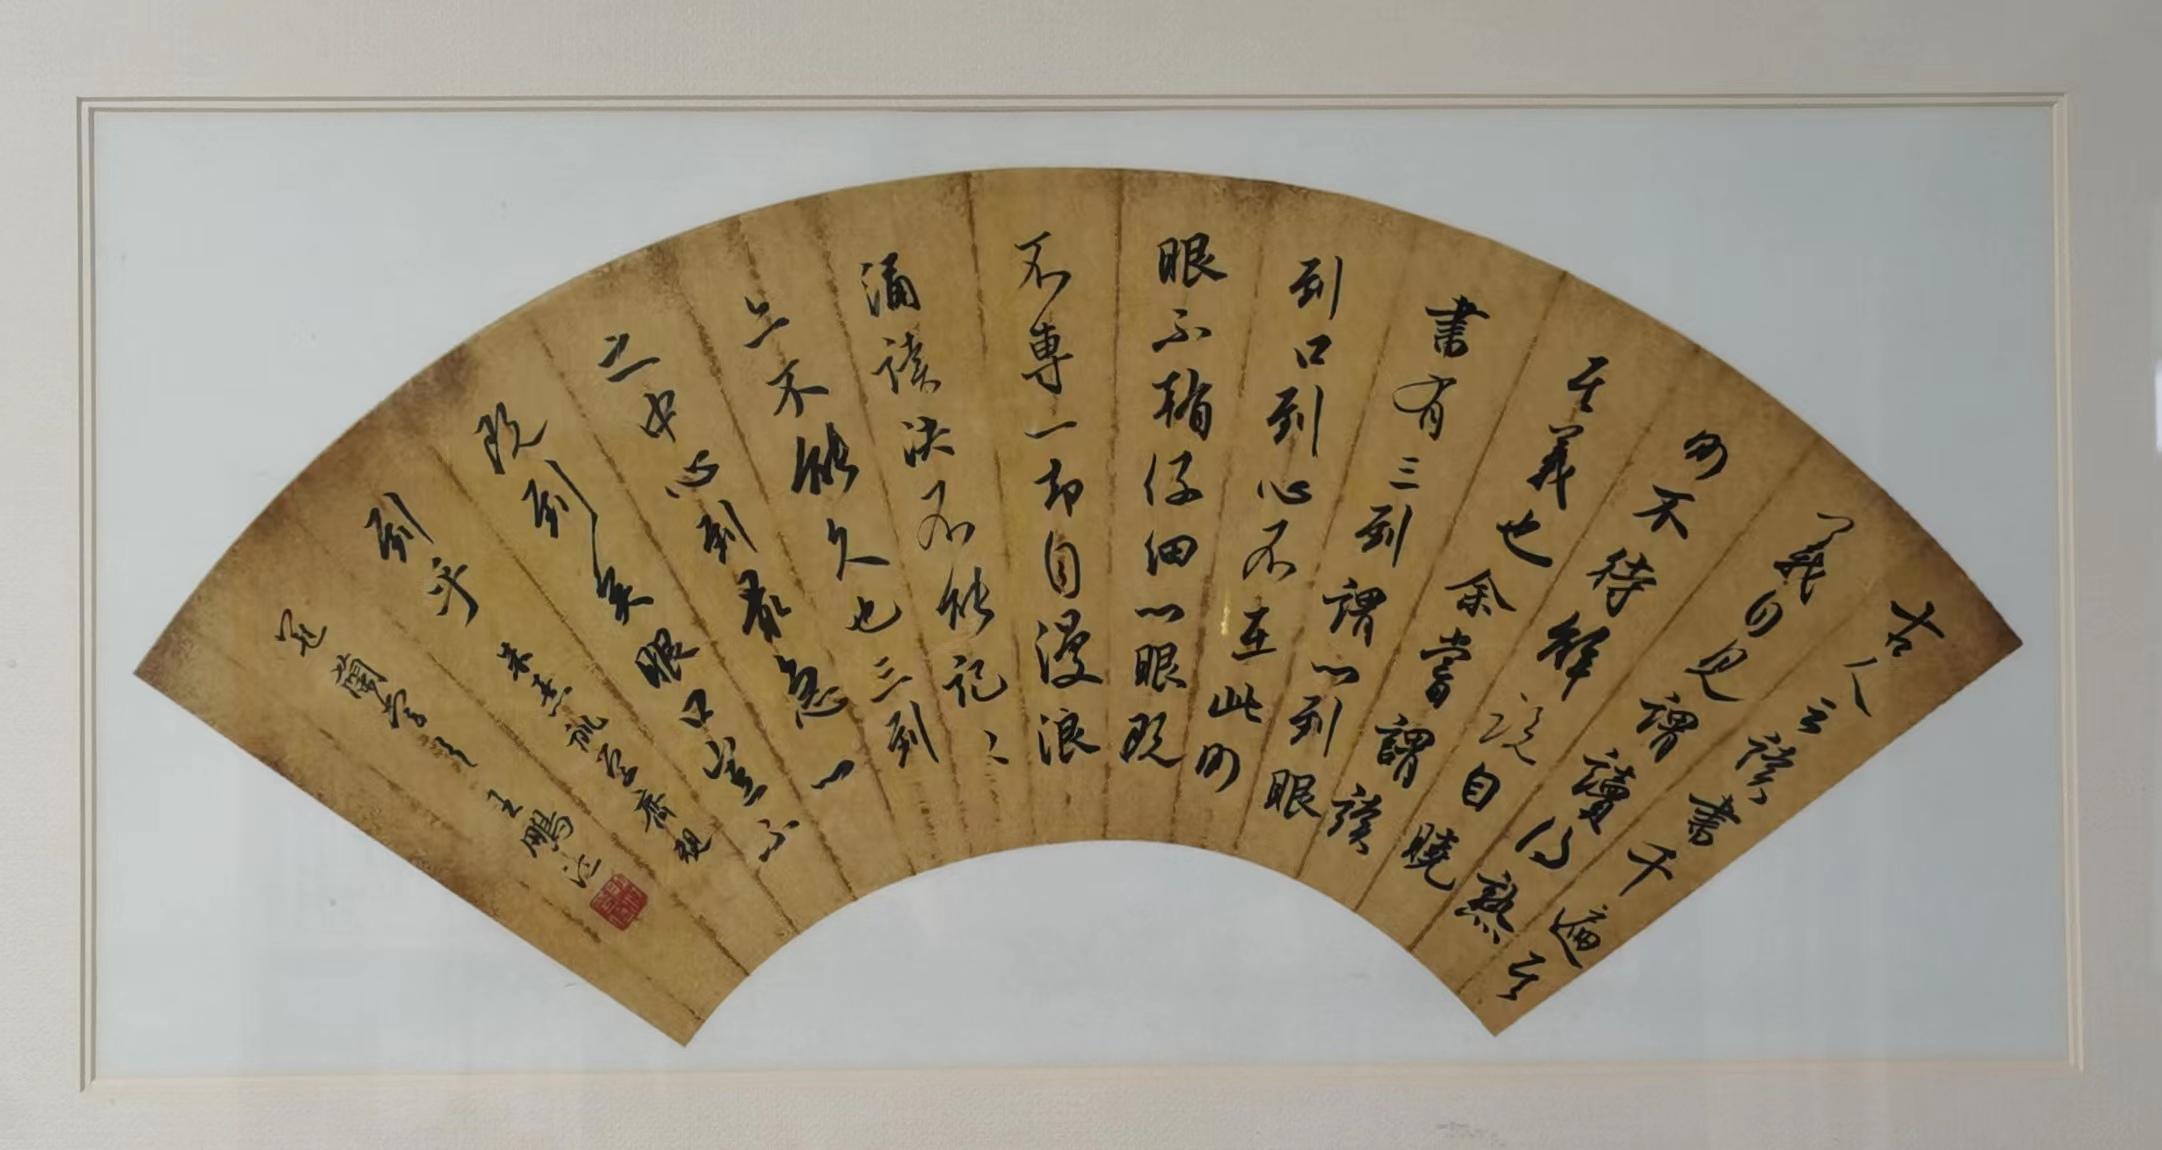 古人云讀書千遍其
義自見謂讀得熟
則不待解說自曉
其義也余嘗謂讀
書有三到謂心到眼
到口到心不在此則
眼不稍仔細心眼既
不專一卻自漫浪
誦讀決不能記〻
亦不能久也三到
之中心到最急心
既到矣眼口豈不
到乎 朱熹訓學齋規
蘭 王鵬